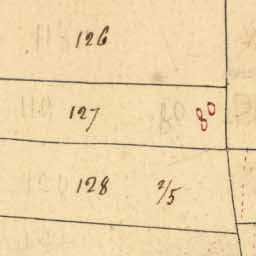 126
127 80
128 2/5